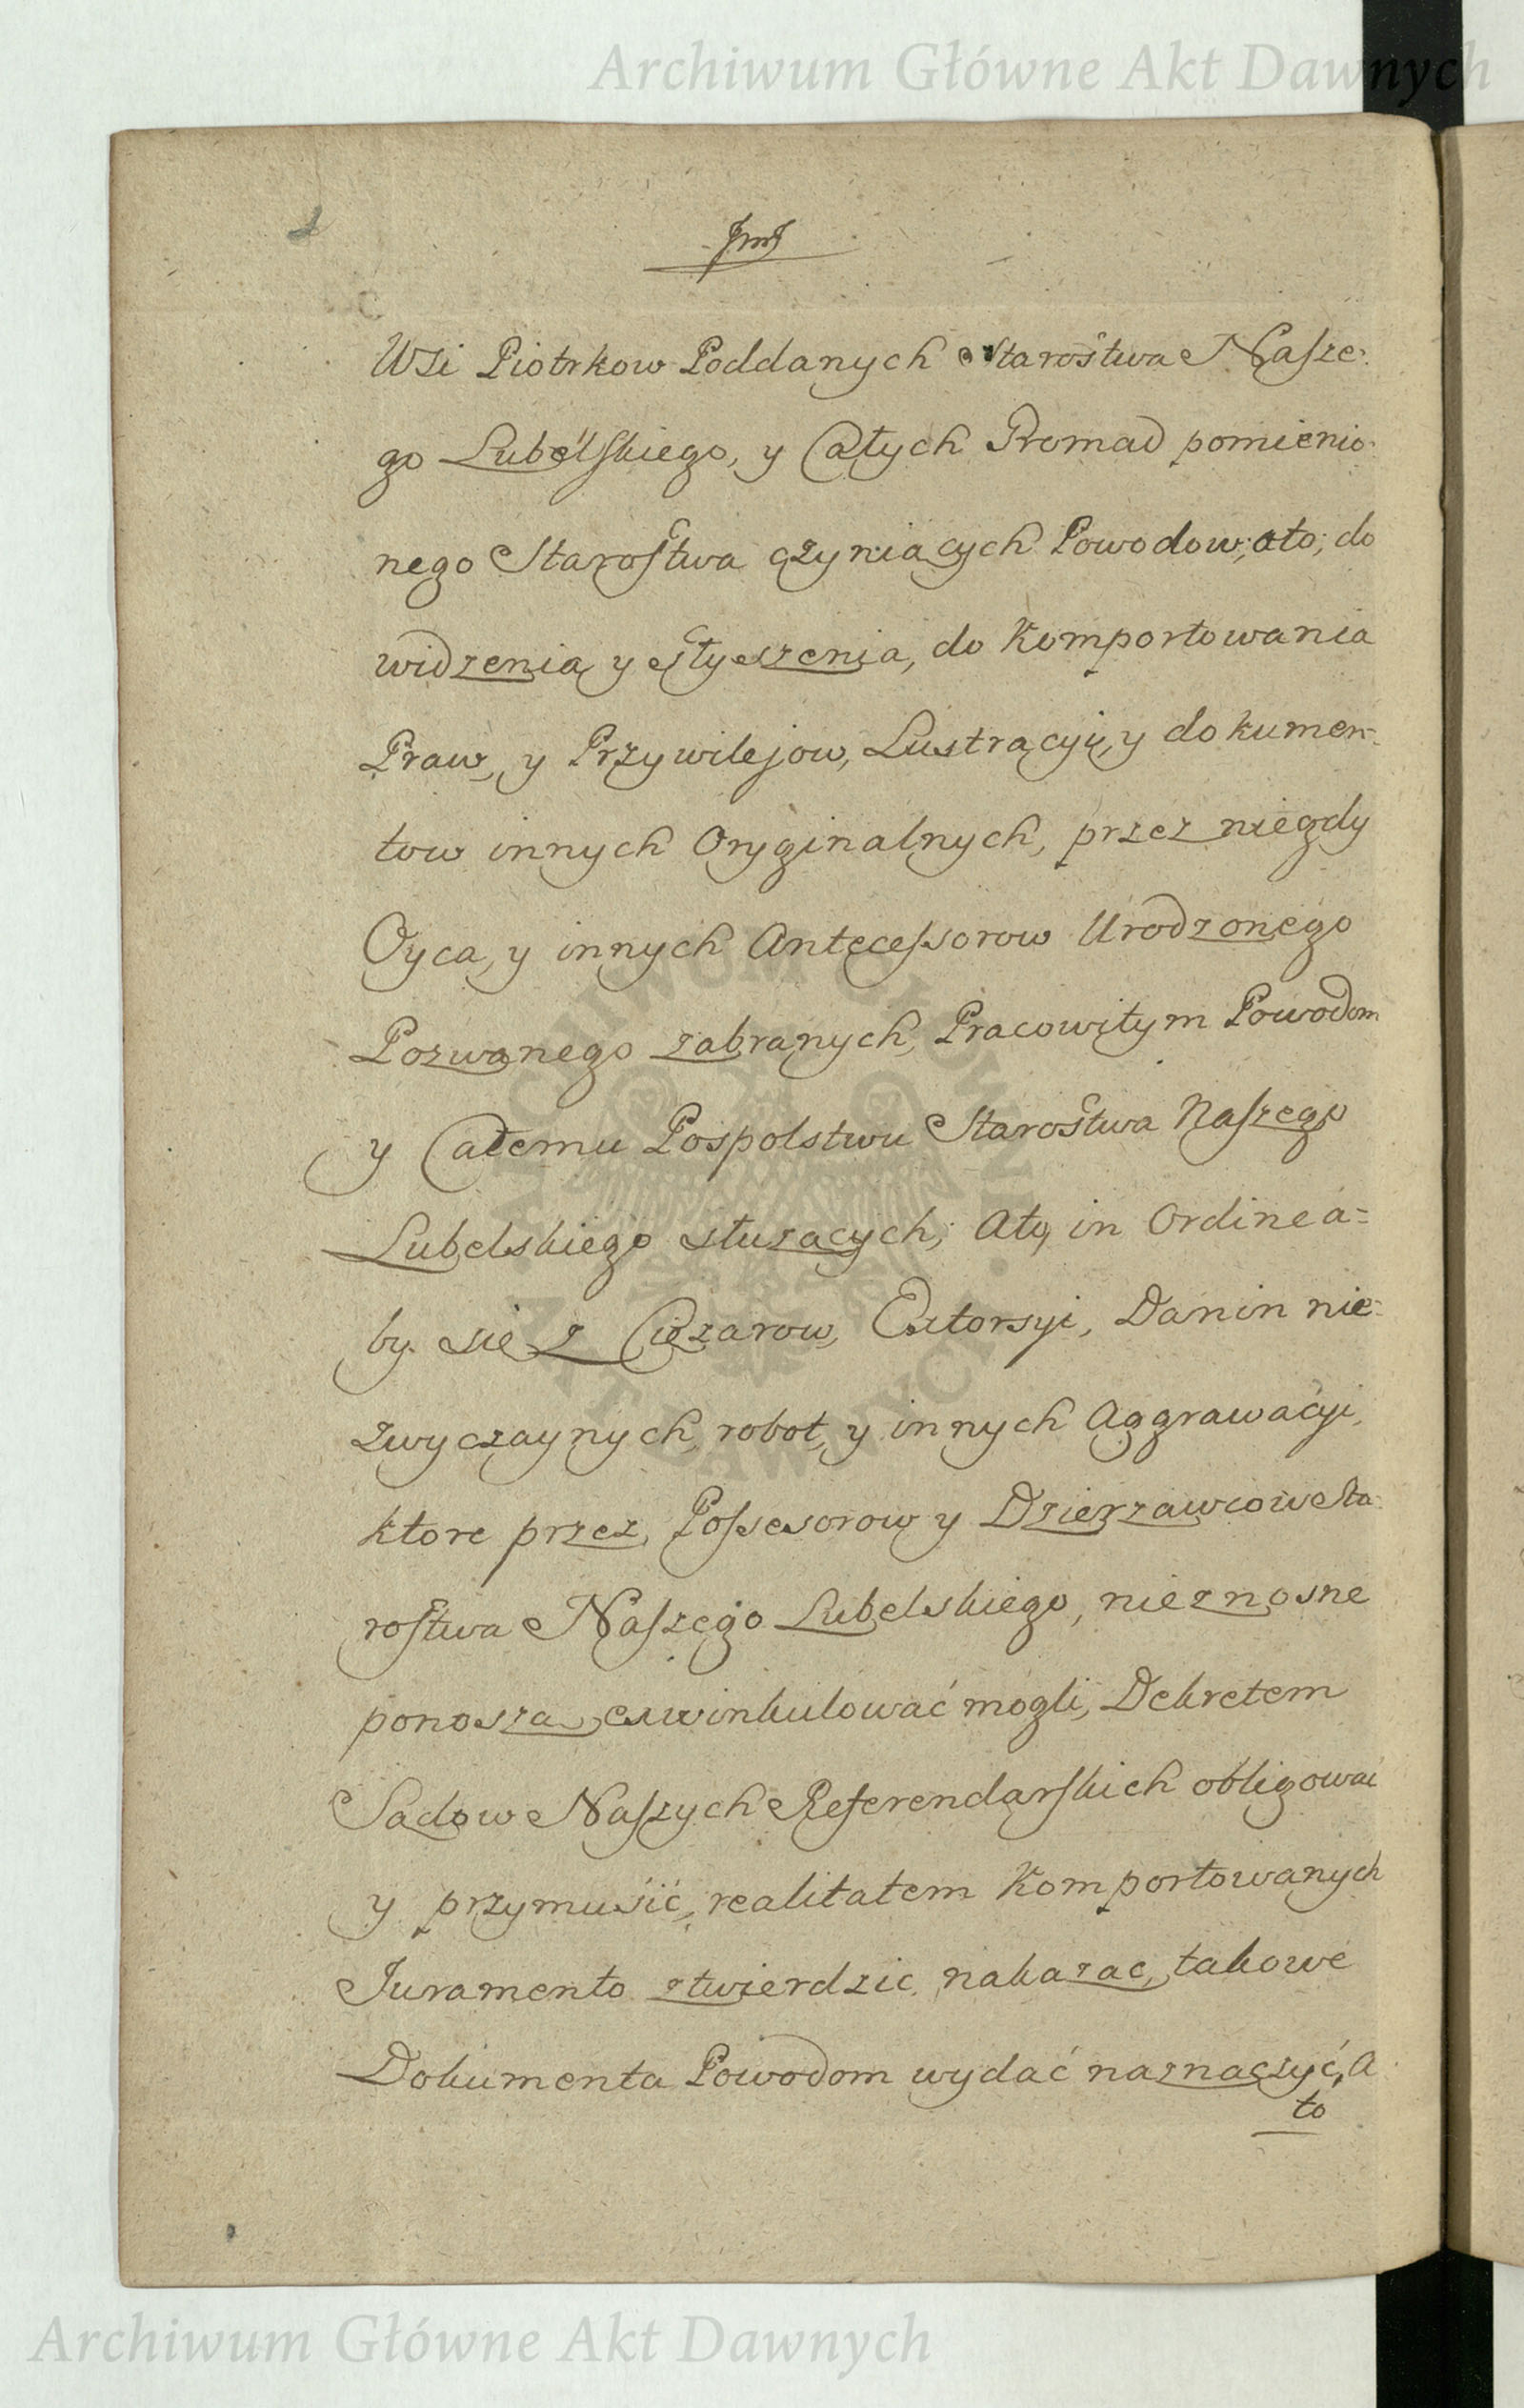 Archiwum Główne Akt Dawnych
Wsi Piotrkow Poddanych Starostwa Nasze-
go Lubelskiego, y Całych Gromad pomienio-
nego Starostwa czyniących Powodow; ato; do
widzenia y słyszenia, do Komportowania
Praw, y Przywilejow, Lustracyi, y dokumen-
tow innych Oryginalnych, przez niegdy
Oyca, y innych Antecessorow Urodzonego
Pozwanego zabranych, Pracowitym Powodom
y Całemu Pospolstwu Starostwa Naszego
Lubelskiego służących; Ato, in Ordine a=
by się z Ciężarow, Extorsyi, Danin nie=
zwyczaynych, robot, y innych Aggrawacyi,
ktore przez Possesorow y Dzierzawcow Sta-
rostwa Naszego Lubelskiego, nieznosne
ponoszą, exwinkulować mogli, Dekretem
Sądow Naszych Referendarskich obligować
y przymusić, realitatem Komportowanych
Juramento ztwierdzic nakazac, takowe
Dokumenta Powodom wydać naznaczyć, A
to
ARCHIWUM GŁÓWNE
AKT DAWNYCH
Archiwum Główne Akt Dawnych